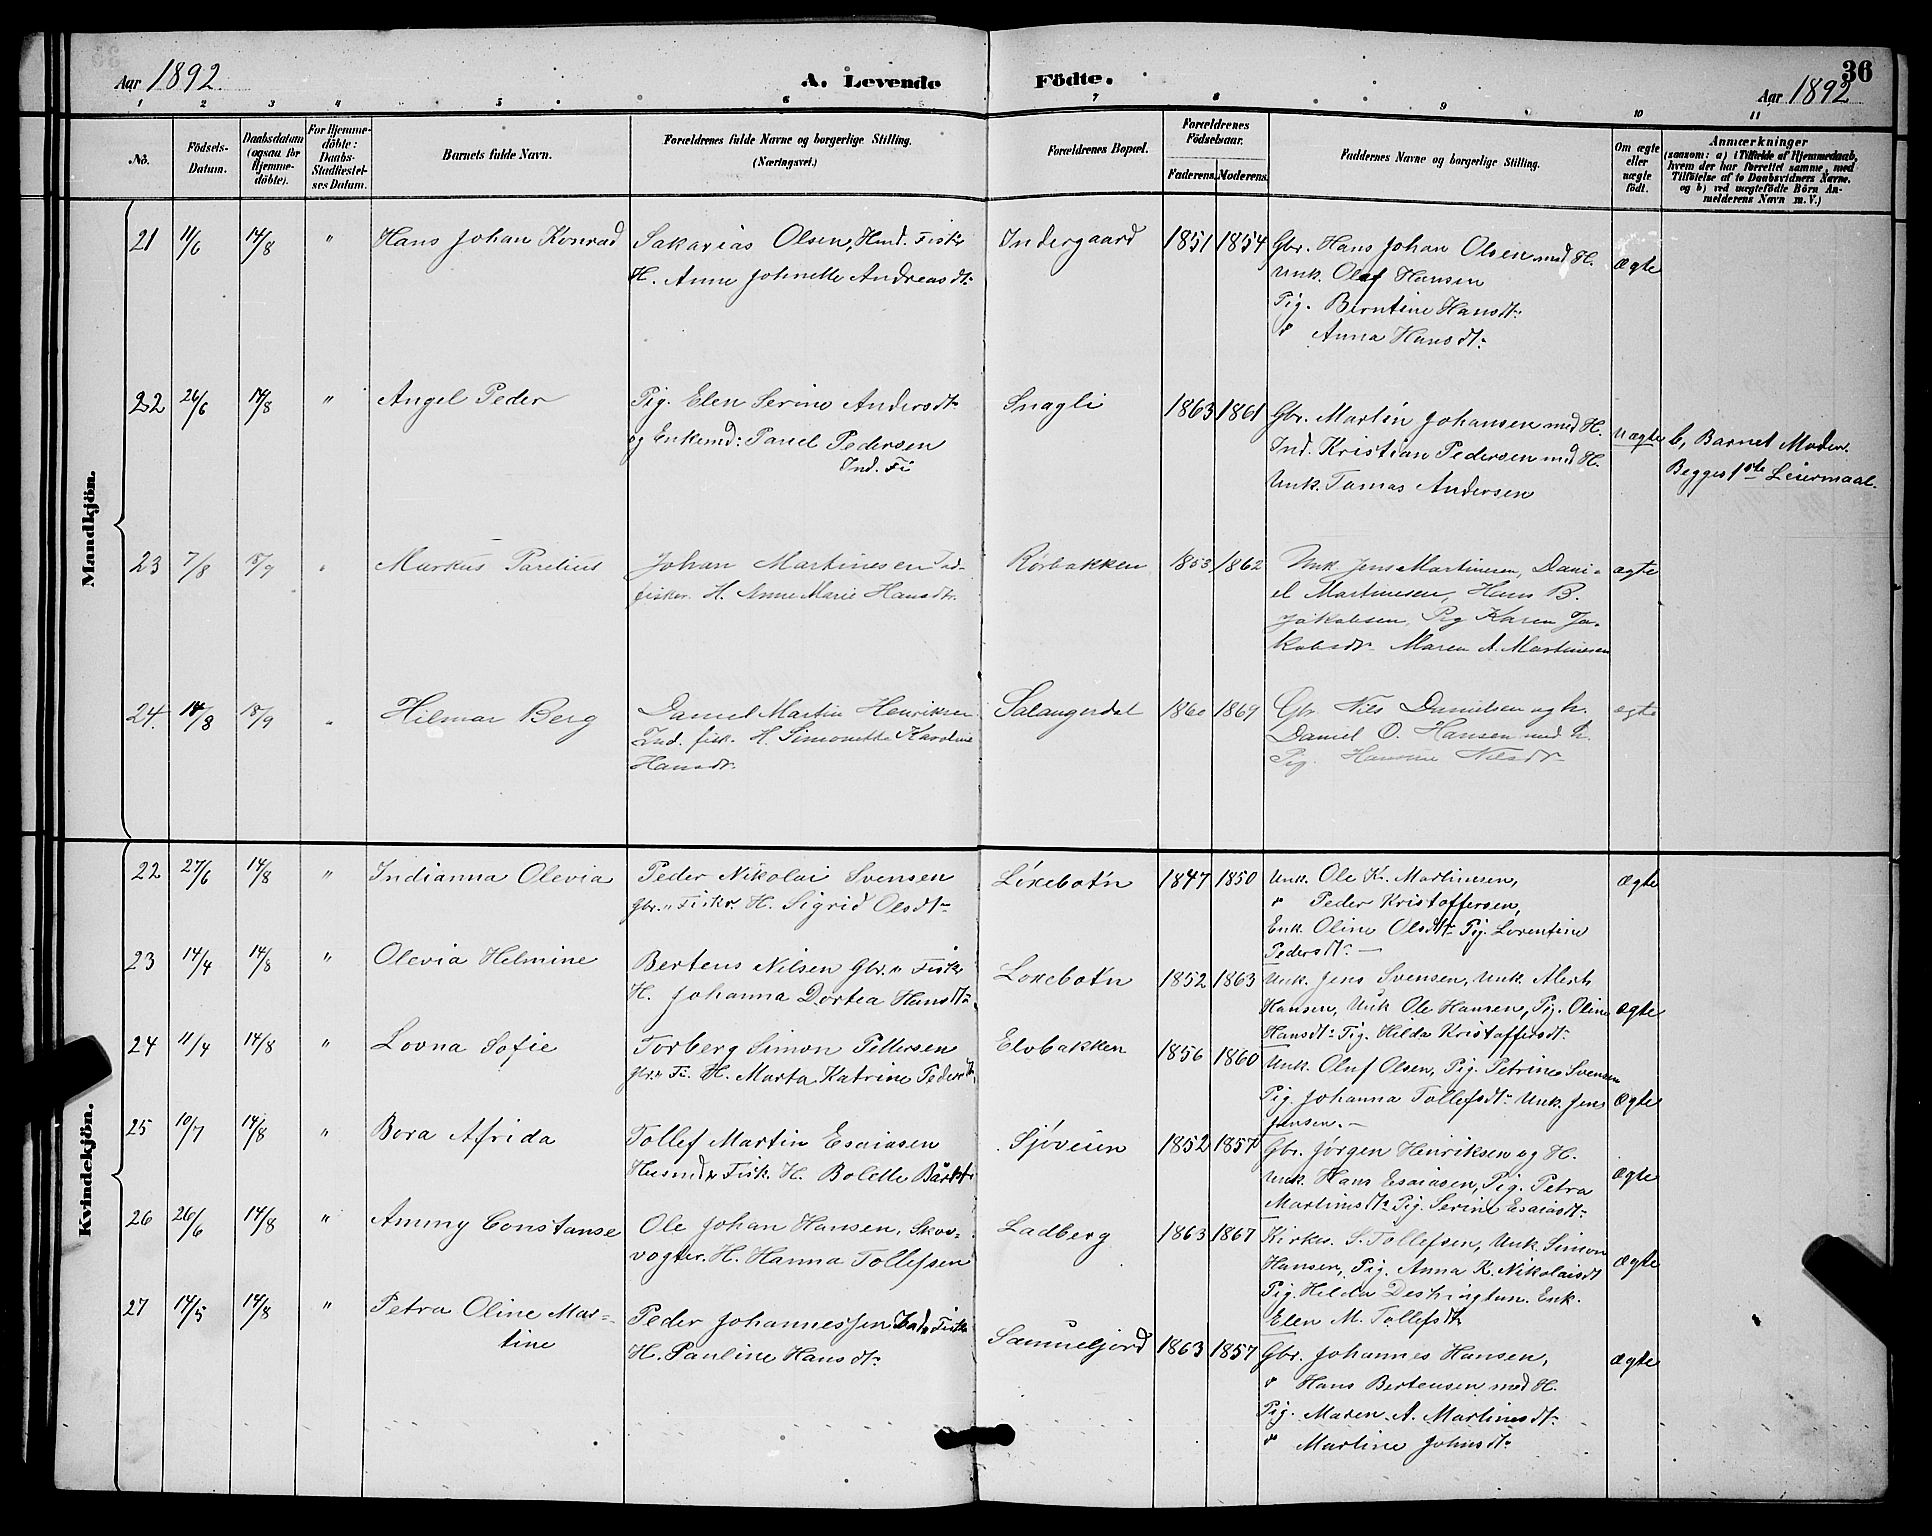 36
Aar 1892. A. Levende Födte. Aar 1892
1 2 3 4 5 6 7 8 9 10 11
No.
Födsels-Datum.
Daabsdatum (ogsaa for Hjemme-döbte).
For Hjemme-döbte: Daabs-Stadfæstel-ses Datum.
Barnets fulde Navn.
Forældrenes fulde Navne og borgerlige Stilling.
(Næringsvei.)
Forældrenes Bopæl.
Forældrenes Födselsaar.
Faderens. Moderens.
Faddernes Navne og borgerlige Stilling.
Om ægte eller uægte födt.
Anmærkninger
(saasom: a) i Tilfælde af Hjemmedaab,
hvem der har forrettet samme, med
Tilföielse af to Daabsvidners Navne,
og b) ved uægtefödte Börn An-
melderens Navn m. V.)
Mandkjön.
21 11/6 14/8 " Hans Johan Konrad
Sakarias Olsen, Ind. Fisk
H. Anne Johnette Andreasdt.
Indergaard 1851 1854
Gbr. Hans Johan Olsen med H.
Unk. Olaf Hansen
Pig. Berntine Hansdt.
" Anna Hansdt.
Ægte
22 26/6 14/8 " Angel Peder
Pig. Elen Serine Andersdt.
og Enkemd: Paul Pedersen
Ind. Fi
Snagli 1863 1861
Gbr. Martin Johansen med H.
Ind. Kristian Pedersen med H.
Unk. Tomas Andersen
Uægte
b, Barnet Moder.
Begges 1ste Leiermaal.
23 7/8 18/9 " Markus Parelius
Johan Martinesen Ind.
fisker H. Anne Marie Hansdt.
Rörbakken 1853 1862
Unk. Jens Martinesen, Dani-
el Martinesen, Hans B.
Jakobsen, Pig Karen Ja-
kobsdt. Maren A. Martinesen
ægte
24. 14/8 18/9 " Hilmar Berg
Daniel Martin Henriksen
Ind. fisk. H. Simonette Karoline
Hansdt.
Salangerdal 1860 1869
Gbr. Nils Danielsen og h.
Daniel O. Hansen med h.
Pig. Hansine Nilsdt.
ægte
Kvindekjön.
22 27/6 14/8 " Indianna Olevia
Peder Nikolai Svensen
Gbr. " Fiskr. H. Sigrid Olsdt.
Löxebotn 1847 1850
Unk. Ole K. Martinesen,
" Peder Kristoffersen,
Enk. Oline Olsdt. Pig. Lorentine
Pedersdt. —
Ægte
23 14/4 14/8 " Olevia Helmine
Bertens Nilsen Gbr. " Fisk
H. Johanna Dortea Hansdt.
Loxebotn 1852 1863
Unk. Jens Svensen, Unk. Alert
Hansen, Unk Ole Hansen, Pig. Oline
Hansdt. Pig. Hilda Kristoffersdt.
Ægte
24 11/4 14/8 " Lovna Sofie
Torberg Simon Pettersen
Gbr. " Fi. H. Marta Katrine Pedersdt.
Elvbakken 1856 1860
Unk. Oluf Olsen, Pig. Petrine Svensen
Pig. Johanna Tollefsdt. Unk. Jens
Jensen. —
Ægte
25 10/7 14/8 " Bora Afrida
Tollef Martin Esaiasen
Husmd. Fisk. H. Bolette Bärdt.
Sjöveien 1852 1857
Gbr. Jörgen Henriksen og H.
Unk. Hans Esaiasen, Pig. Petra
Martinsdt. Pig. Serine Esaiasdt.
Ægte
26 26/6 14/8 " Ammy Constanse
Ole Johan Hansen, Skov-
vogter. H. Hanna Tollefsen
Ladberg 1863 1867
Kirkes. S. Tollefsen, Unk. Simon
Hansen, Pig. Anna K. Nikolaisdt
Pig. Hilda Deshington. Enk.
Elen M. Tollefsdt.
Ægte
27 14/5 14/8 " Petra Oline Mar-
tine
Peder Johannessen Ind. Fisk
H. Pauline Hansdt.
Samueljord 1863 1857
Gbr. Johannes Hansen,
" Hans Bertensen med H.
Pig. Maren A. Martinesdt.
" Martine Johnsdt.
Ægte